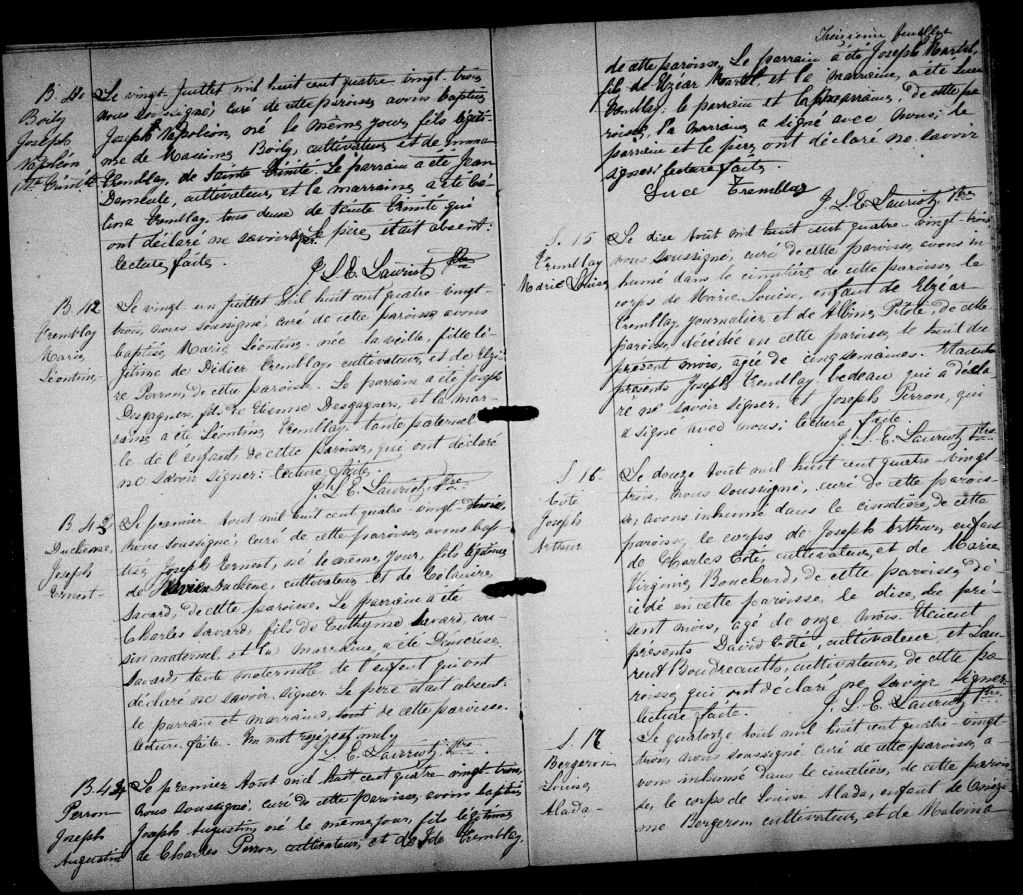 B. 41.
Boily
Joseph
Napoléon
Ste Trinité
Le vingt Juillet mil huit cent quatre vingt-trois
nous soussigné, curé de cette paroisse avons baptisé
Joseph Napoléon, né le même jour, fils légiti-
me de Maxime Boily, cultivateur, et de Emma
Tremblay, de Sainte Trinité. Le parrain a été Jean
Demeule, cultivateur, et la marraine a été Cé-
lina Tremblay, tous deux de Sainte Trinité qui
ont déclaré ne savoir signer. Le père était absent:
lecture faite.
J. L. E. Lauriot, Ptre
B. 42
Tremblay
Marie
Léontine
Le vingt un Juillet mil huit cent quatre vingt-
trois, nous soussigné, curé de cette paroisse avons
baptisé Marie Léontine, née la veille, fille lé-
gitime de Didier Tremblay, cultivateur, et de Elzi-
re Perron, de cette paroisse. Le parrain a été Joseph
Desgagners, fils de Etienne Desgagners, et la mar-
raine a été Léontine Tremblay, tante paternel-
le de l'enfant, de cette paroisse, qui ont déclaré
ne savoir signer: lecture faite.
J. L. E. Lauriot, Ptre
B. 43
Duchesne,
Joseph
Ernest-
Le premier Aout mil huit cent quatre vingt-trois,
nous soussigné, curé de cette paroisse, avons bap-
tisé Joseph Ernest, né le même jour, fils légitime
de Duchesne, cultivateur, et de Célanire
Savard, de cette paroisse. Le parrain a été
Charles Savard, fils de Euthyme Savard, cou-
sin maternel, et la marraine, a été
Savard, tante maternelle de l'enfant qui ont
déclaré ne savoir signer. Le père était absent.
le parrain et marraine, tout de cette paroisse.
Lecture faite. Un mot rayé est nul
J. L. E. Lauriot, Ptre.
B. 44
Perron
Joseph
Augustin
Le premier Aout mil huit cent quatre vingt trois
nous soussigné, curé de cette paroisse, avons baptisé
Joseph Augustin, né le même jour, fils légitime
de Charles Perron, cultivateur, et de Ide Tremblay,
Treizième feuillet
de cette paroisse. Le parrain a été Joseph Martel,
fils de Elzéar Martel et la marraine, a été Luce
Tremblay, le parrain et la marraine, de cette pa-
roisse. La marraine a signé avec nous; le
parrain et le père, ont déclaré ne savoir
signer. lecture faite.
Luce Tremblay
J. L. E. Lauriot, Ptre
S. 15
Tremblay
Marie Louise
Le dix Aout mil huit cent quatre-vingt-trois
nous soussigné, curé de cette paroisse, avons in-
humé dans le cimetière de cette paroisse, le
corps de Marie Louise, enfant de Elzéar
Tremblay, journalier, et de Albine Pilote, de cette
paroisse, décédée en cette paroisse, le huit du
présent mois, agée de cinq semaines. Etaient
présents Joseph Tremblay, bedeau qui a décla-
ré ne savoir signer, et Joseph Perron, qui
a signé avec nous; lecture faite.
J. L. E. Lauriot, Ptre.
S. 16
Coté
Joseph
Arthur
Le douze Aout mil huit cent quatre-vingt
trois, nous soussigné, curé de cette parois-
se, avons inhumé dans le cimetière, de cette
paroisse, le corps de Joseph Arthur, enfant
de Charles Coté, cultivateur, et de Marie
Virginie Bouchard, de cette paroisse, Dé-
cédé en cette paroisse, le dix, du pré-
sent mois, agé de onze mois. Etaient
présents David Coté, cultivateur, et Lau-
rent Boudreault, cultivateurs, de cette pa-
roisse, qui ont déclaré ne savoir signer-
lecture faite.
J. L. E. Lauriot, Ptre.
S. 17
Bergeron
Louise
Alada-
Le quatorze Aout mil huit cent quatre-vingt-
trois, nous soussigné curé de cette paroisse, a-
vons inhumé dans le cimetière, de cette parois-
se, le corps de Louise Alada, enfant de Onézi-
me Bergeron, cultivateur, et de Malvina